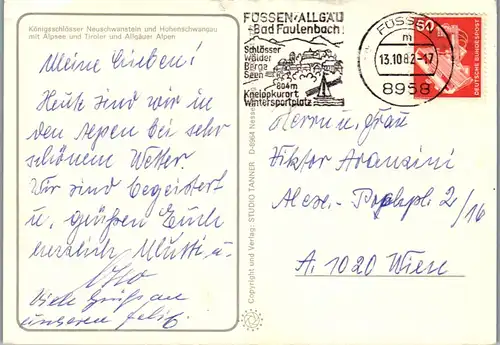 Königsschlösser Neuschwanstein und Hohenschwangau
mit Alpsee und Tiroler und Allgäuer Alpen
Meine Lieben!
Heute sind wir in
den Alpen bei sehr
schönem Wetter
Wir sind begeistert
u. grüßen Euch
herzlich Mutti u.
Otto
Viele Grüße an
unseren Felix
Copyright und Verlag: STUDIO TANNER D-8964 Nesse
FÜSSEN·ALLGÄU
Bad Faulenbach
Schlösser
Wälder
Berge
Seen
804m
Kneippkurort
Wintersportplatz
FÜSSEN
m
13.10.82-17
8958
60
DEUTSCHE BUNDESPOST
Herrn u. Frau
Viktor
Alex.- 2/16
A. 1020 Wien